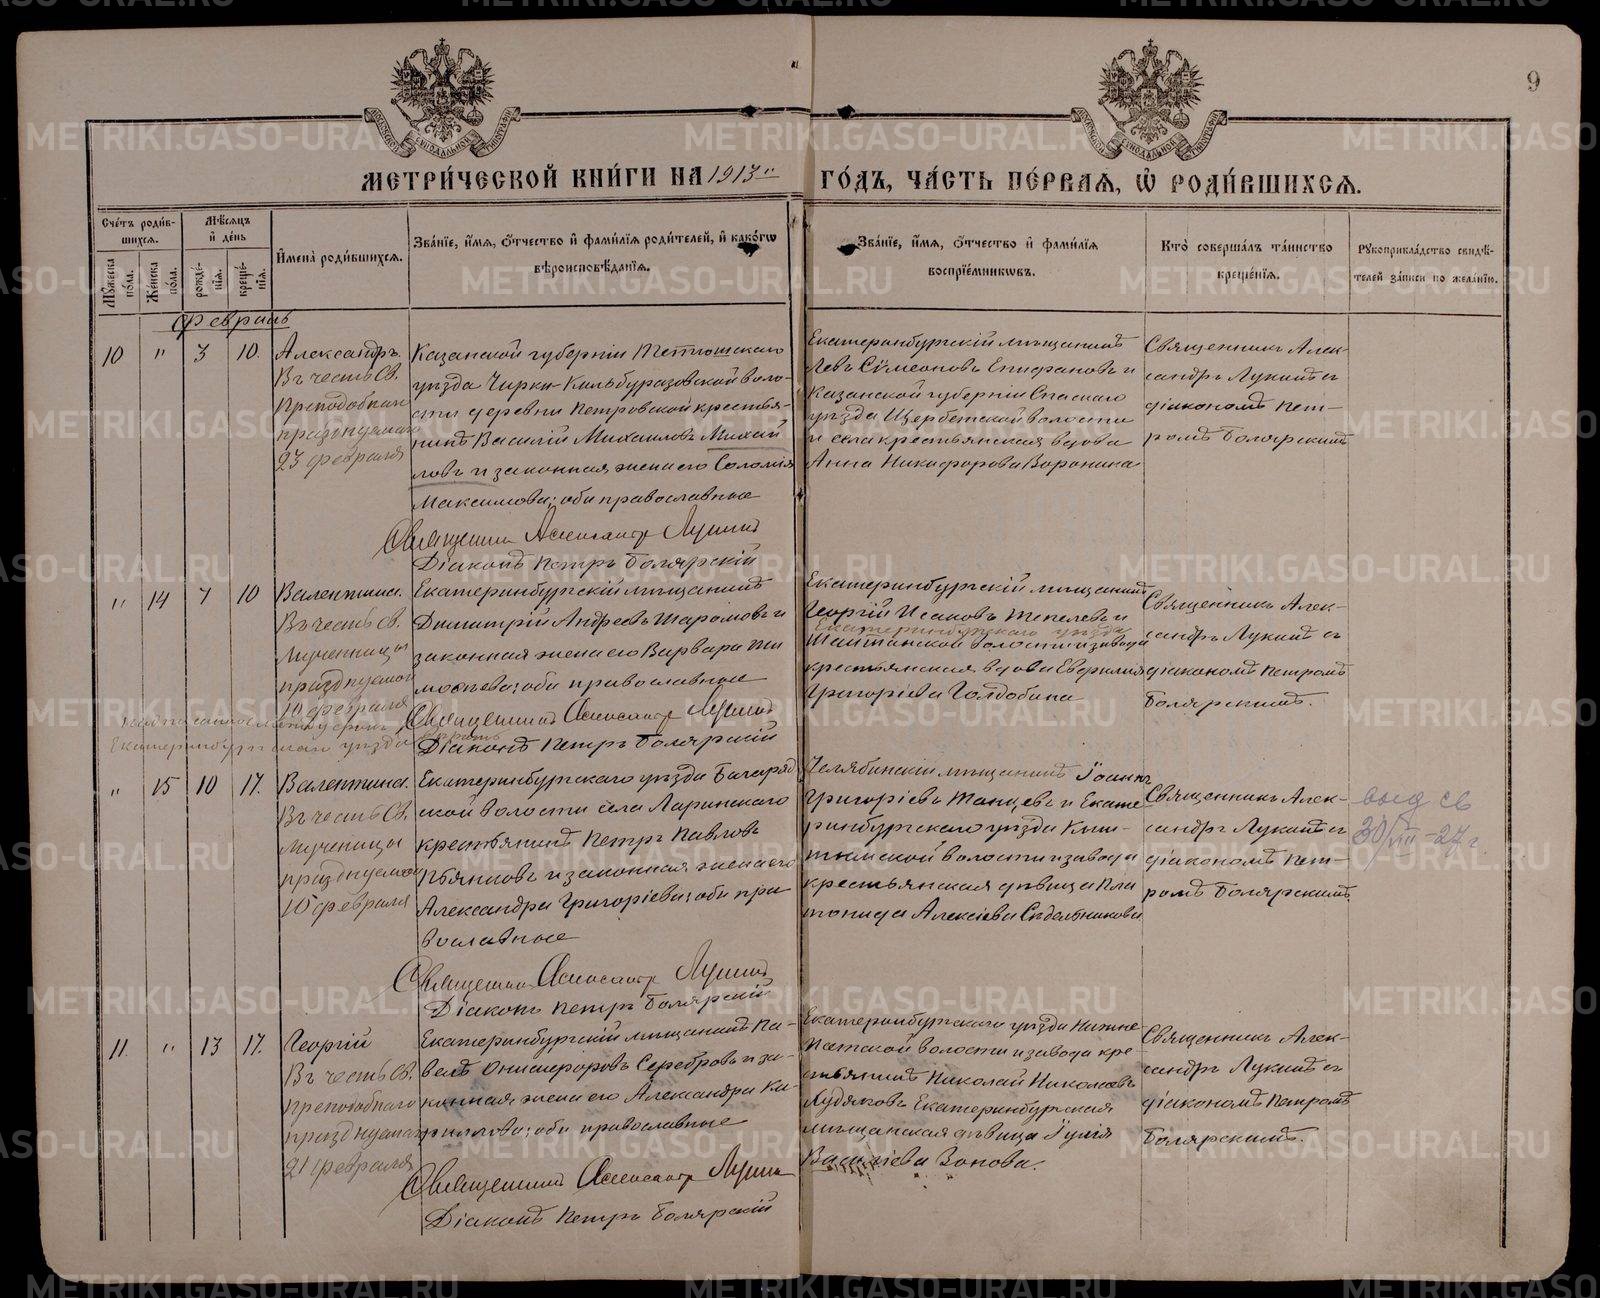 9
МЕТРИ́ЧЕСКОЙ КНИ́ГИ НА 1913 й ГО́ДЪ, ЧА́СТЬ ПЕ́РВАЯ, Ѡ҆ РОДИ́ВШИХСЯ.
Сче́тъ роди́в-
шихся.
Мꙋ́жеска по́ла.
Же́нска по́ла.
Мѣ́сяцъ
и҆ де́нь
рожде́-
нїя.
креще́-
нїя.
И҆мена̀ роди́вшихся.
Зва́нїе, и҆́мя, ѻ҆́тчество и҆ фами́лїя роди́телей, и҆ како́гѡ
вѣроисповѣ́данїя.
Зва́нїе, и҆́мя, ѻ҆́тчество и҆ фами́лїя
воспрїе́мниковъ.
Кто̀ соверша́лъ та́инство
креще́нїя.
Рꙋкоприкла́дство свидѣ́-
телей за́писи по жела́нїю.
Февраль
10
"
3
10.
Александръ.
Въ честь Св.
Преподобнаго
празднуемаго
23 февраля
Казанской губерніи Тетюшскаго
уѣзда Чирки-Кильдуразовской воло-
сти деревни Петровской крестья-
нинъ Василій Михаиловъ Михай
ловъ и законная жена его Соломія
Максимова; оба православные
Священникъ Александръ Лукинъ
Діаконъ Петръ Болярскій
Екатеринбургскій мѣщанинъ
Левъ Сѵмеоновъ Епифановъ и
Казанской губерніи Спасскаго
уѣзда Щербетской волости
и села крестьянская вдова
Анна Никифорова Воронина
Священникъ Алек-
сандръ Лукинъ съ
діакономъ Пет-
ромъ Болярскимъ
"
14
7
10
Валентина.
Въ честь Св.
Мученницы
празднуемой
10 февраля
Екатеринбургскій мѣщанинъ
Димитрій Андреевъ Шаромовъ и
законная жена его Варвара Ти
моѳеева; оба православные
Священникъ Александръ Лукинъ
Діаконъ Петръ Болярскій
Екатеринбургскаго уѣзда
Екатеринбургскій мѣщанинъ
Георгій Исаковъ Шепелевъ и
Екатеринбургскаго уѣзда
Шайтанской волости и завода
крестьянская вдова Евфимія
Григоріева Голдобина
Священникъ Алек-
сандръ Лукинъ съ
діакономъ Петромъ
Болярскимъ.
"
15
10
17.
Валентина.
Въ честь Св.
Мученицы
празднуемой
10 февраля
Екатеринбургскаго уѣзда Багаряк
ской волости села Ларинскаго
крестьянинъ Петръ Павловъ
Пьянковъ и законная жена его
Александра Григоріева; оба пра
вославные
Священникъ Александръ Лукинъ
Діаконъ Петръ Болярскій
Челябинскій мѣщанинъ Іоаннъ
Григоріевъ Танцевъ и Екате
ринбургскаго уѣзда Кыш-
тымской волости и завода
крестьянская дѣвица Пла
тонида Алексіева Сѣдельникова
Священникъ Алек-
сандръ Лукинъ съ
діакономъ Пет-
ромъ Болярскимъ
выд св
30/VIII-27 г.
11.
"
13
17.
Георгій
Въ честь Св.
Преподобнаго
празднуемаго
21 февраля
Екатеринбургскій мѣщанинъ Па-
велъ Онисифоровъ Серебровъ и за-
конная жена его Александра Ка-
филлова; оба православные
Священникъ Александръ Лукинъ
Діаконъ Петръ Болярскій
Екатеринбургскаго уѣзда Нижне
Исетской волости и завода кре-
стьянинъ Николай Николаевъ
Худяковъ Екатеринбургская
мѣщанская дѣвица Іулія
Василіева Зонова.
Священникъ Алек-
сандръ Лукинъ съ
діакономъ Петромъ
Болярскимъ.